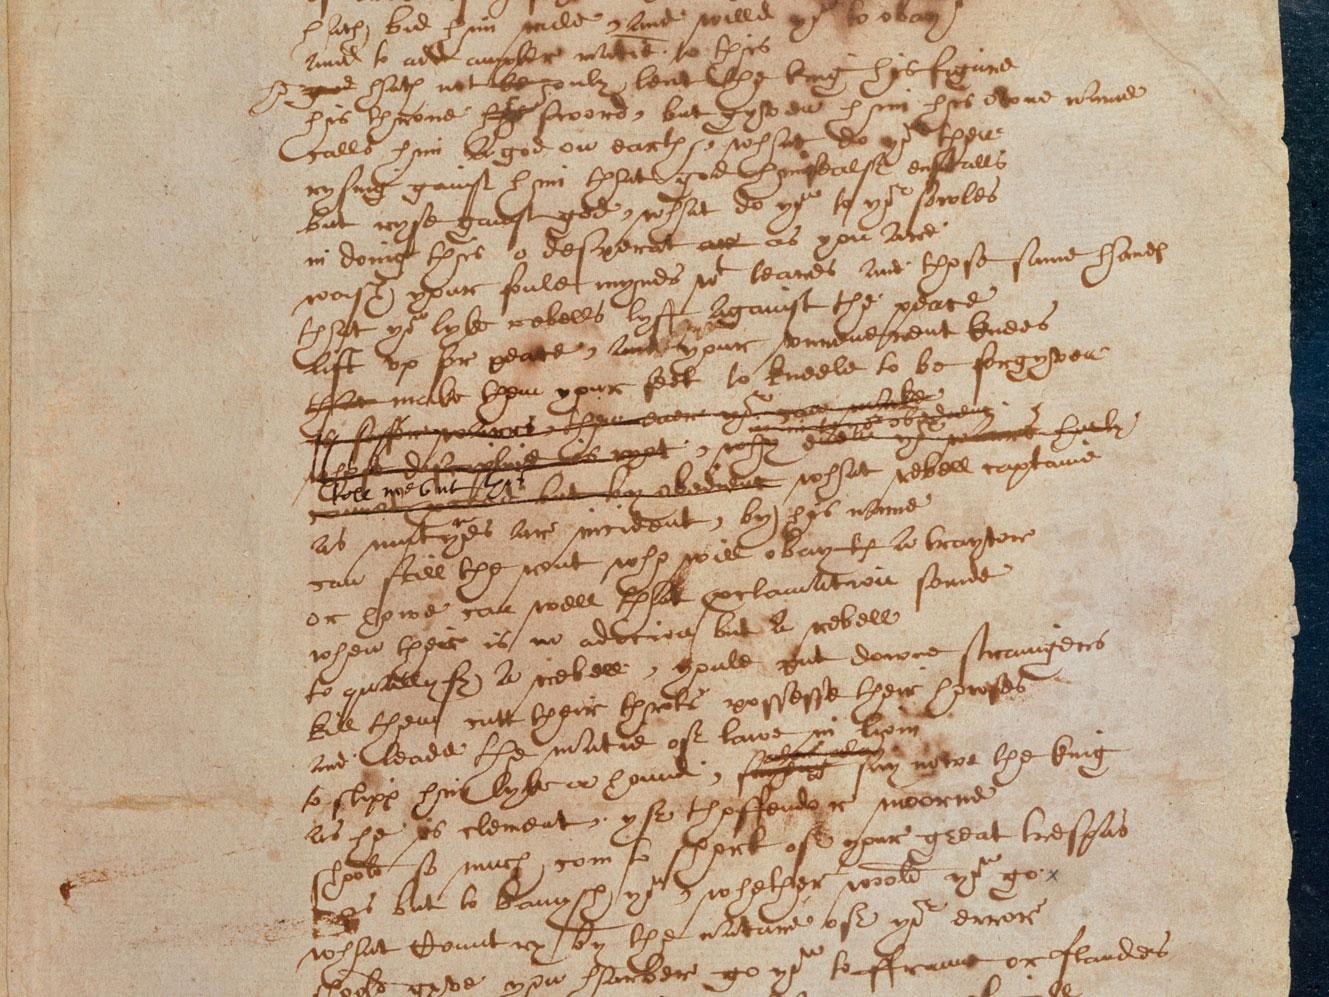 hath bid him rule, and willd yo to obay
and to add ampler matie to this
he god hath not le only lent the king his figure
his throne his sword, but gyven him his owne name
calls him a god on earth, what do yo then
rysing gainst him that god himsealf enstalls
but ryse gainst god, what do yo to yor sowles
in doing this o desperat are as you are
wash your foule mynds wt teares and those same hande
that yo lyke rebells lyft against the peace
lift up for peace, and your unreuerent knees
that make them your feet to kneele to be forgyven
is safer warrs, then euer yo can make
whose discipline is ryot; why euen yor warrs hurly
in in to yor obedienc
tell me but this
cannot proceed but by obedienc what rebell captaine
as mutynes are incident, by his name
can still the rout who will obay th a traytor
or howe can well that proclamation sounde
when ther is no adicion but a rebell
to quallyfy a rebell, youle put downe straingers
kill them cutt their throts possesse their howses
and leade the matie of lawe in liom
to slipp him lyke a hound; say nowe the king
as he is clement, yf thoffendor moorne
shoold so much com to short of your great trespas
as but to banysh yo, whether woold yo go
what Country by the nature of yor error
shoold gyve you harber go yo to ffraunc or flanders